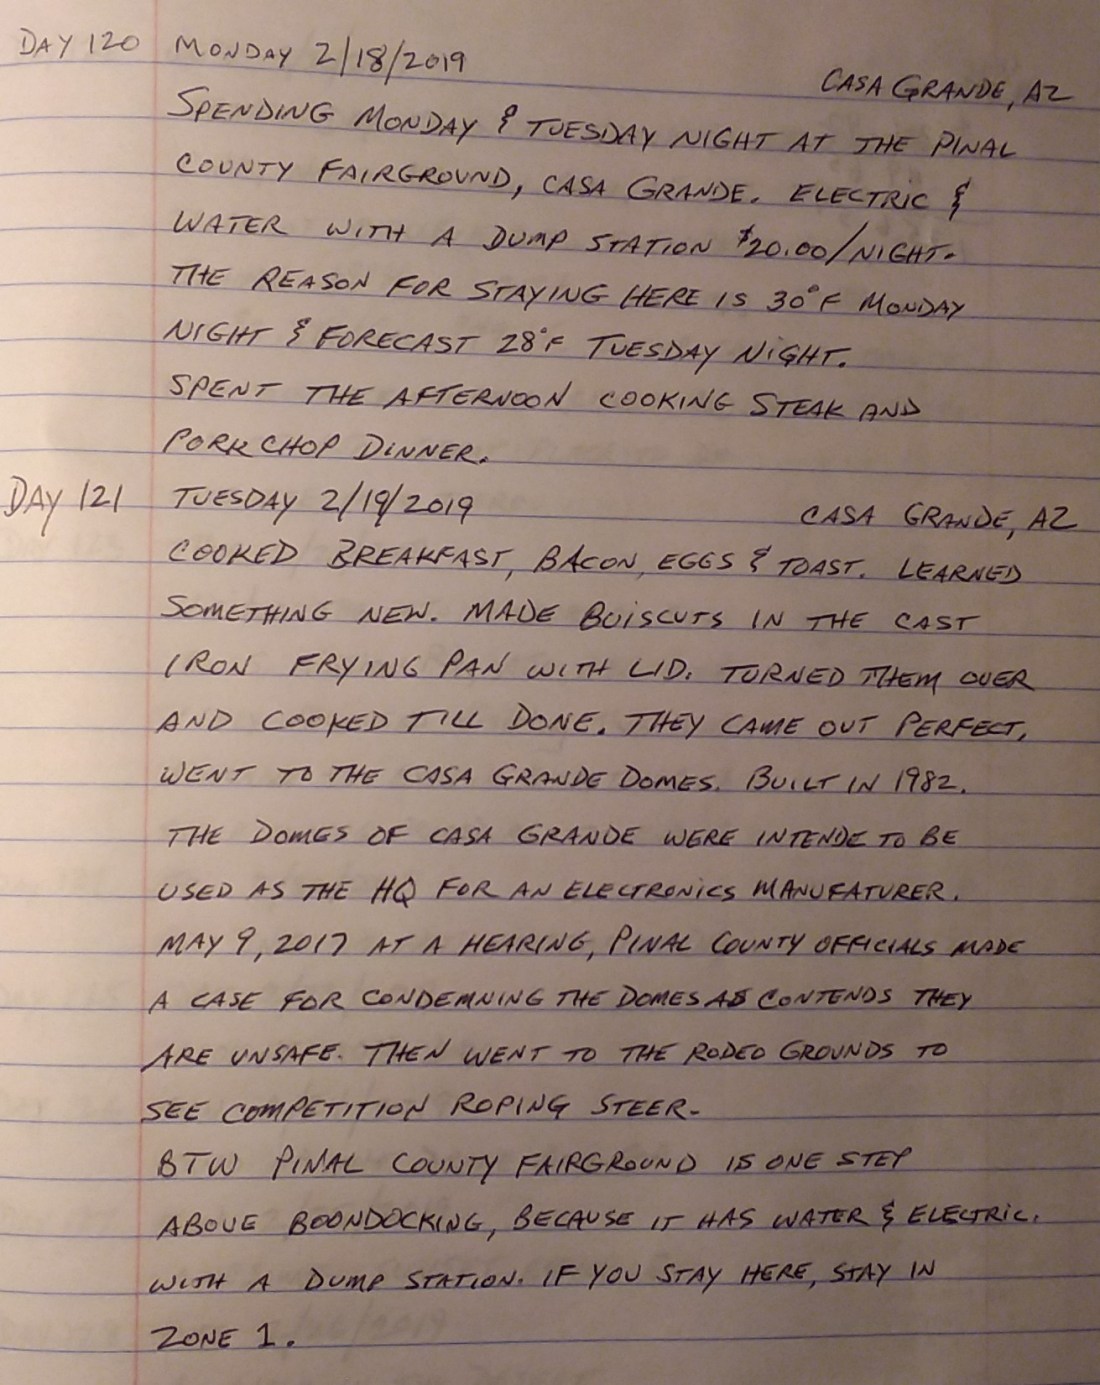 DAY 120 MONDAY 2/18/2019
CASA GRANDE, AZ
SPENDING MONDAY & TUESDAY NIGHT AT THE PINAL
COUNTY FAIRGROUND, CASA GRANDE. ELECTRIC &
WATER WITH A DUMP STATION $20.00/NIGHT.
THE REASON FOR STAYING HERE IS 30°F MONDAY
NIGHT & FORECAST 28°F TUESDAY NIGHT.
SPENT THE AFTERNOON COOKING STEAK AND
PORK CHOP DINNER.
DAY 121 TUESDAY 2/19/2019 CASA GRANDE, AZ
COOKED BREAKFAST, BACON, EGGS & TOAST. LEARNED
SOMETHING NEW. MADE BUISCUTS IN THE CAST
IRON FRYING PAN WITH LID. TURNED THEM OVER
AND COOKED TILL DONE. THEY CAME OUT PERFECT,
WENT TO THE CASA GRANDE DOMES. BUILT IN 1982.
THE DOMES OF CASA GRANDE WERE INTENDE TO BE
USED AS THE HQ FOR AN ELECTRONICS MANUFATURER.
MAY 9, 2017 AT A HEARING, PINAL COUNTY OFFICIALS MADE
A CASE FOR CONDEMNING THE DOMES AS CONTENDS THEY
ARE UNSAFE. THEN WENT TO THE RODEO GROUNDS TO
SEE COMPETITION ROPING STEER.
BTW PINAL COUNTY FAIRGROUND IS ONE STEP
ABOVE BOONDOCKING, BECAUSE IT HAS WATER & ELECTRIC.
WITH A DUMP STATION. IF YOU STAY HERE, STAY IN
ZONE 1.